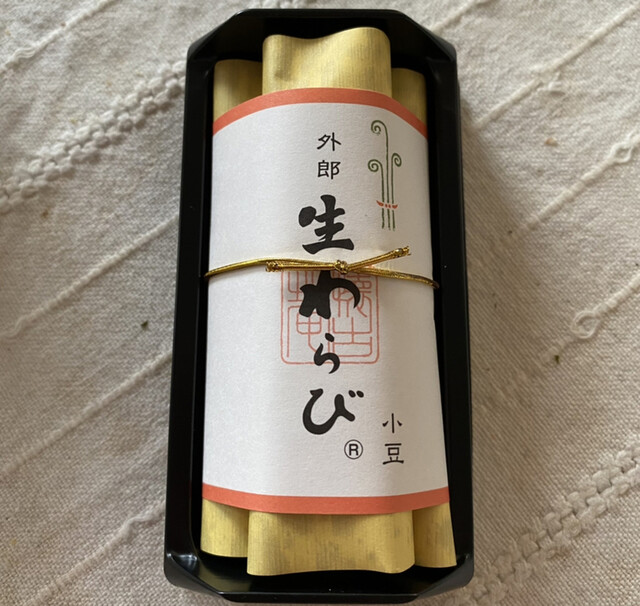 外郎
生わらび
®
小豆